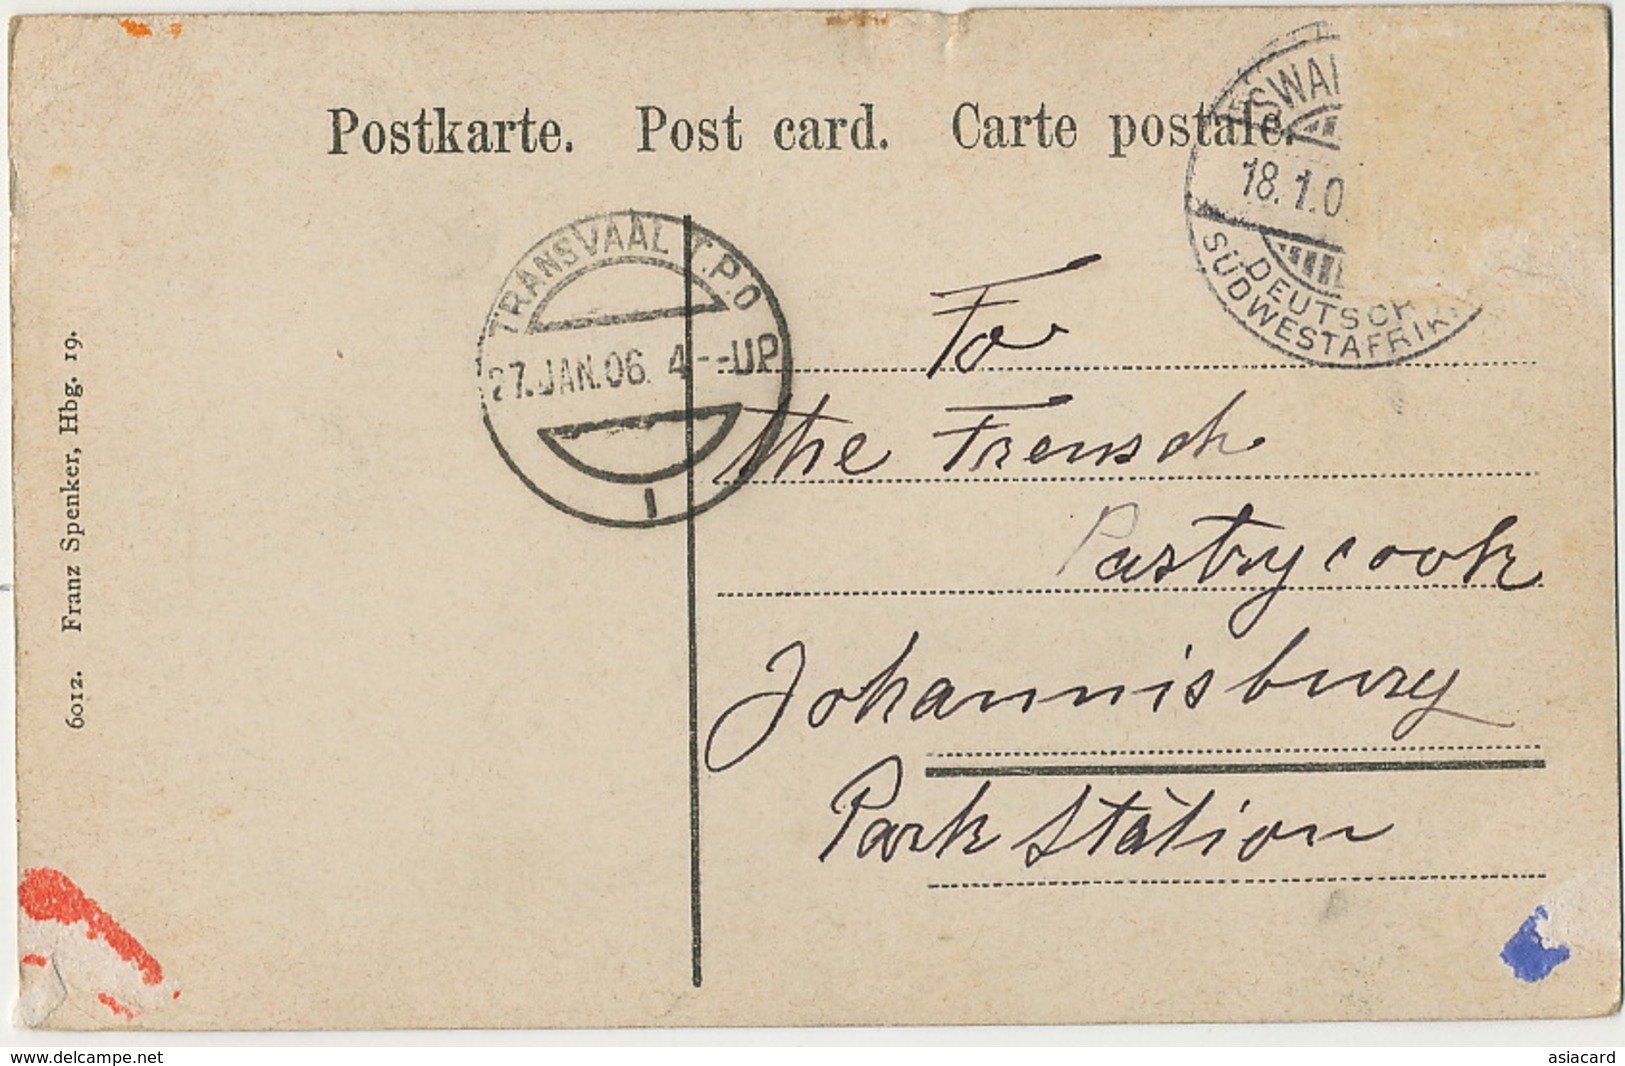 Postkarte. Post card. Carte postale.
18.1.0
DEUTSCH
SÜDWESTAFRIK
TRANSVAAL T.P.O
27.JAN.06. 4--UP
1
To
the Frensch
Pastrycook
Johannisburg
Park Station
6012. Franz Spenker, Hbg. 19.
www.delcampe.net
asiacard